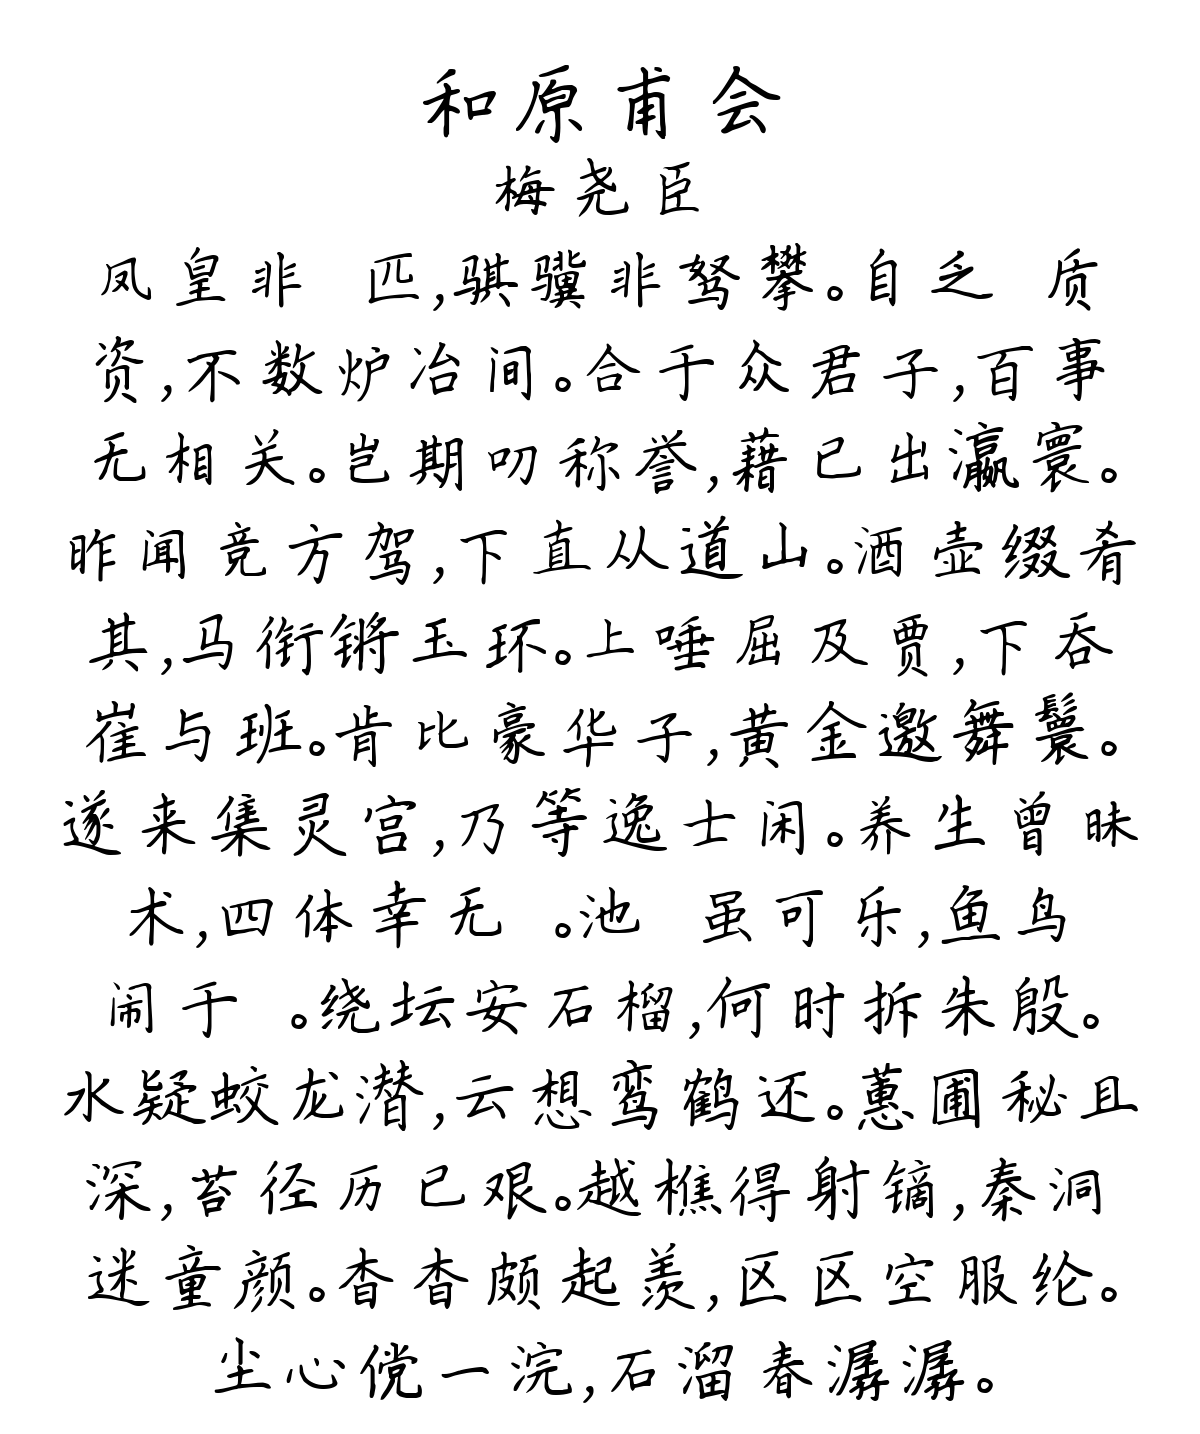 和原甫会
梅尧臣
凤皇非 匹,骐骥非驽攀。自乏 质
资,不数炉冶间。合于众君子,百事
无相关。岂期叨称誉,藉已出瀛寰。
昨闻竞方驾,下直从道山。酒壶缀肴
其,马衔锵玉环。上唾屈及贾,下吞
崔与班。肯比豪华子,黄金邀舞鬟。
遂来集灵宫,乃等逸士闲。养生曾昧
术,四体幸无 。池 虽可乐,鱼鸟
闹于 。绕坛安石榴,何时拆朱殷。
水凝蛟龙潜,云想鸾鹤还。蕙圃秘且
深,苔径历已艰。越樵得射镝,秦洞
迷童颜。杳杳颇起羡,区区空服纶。
尘心傥一浣,石溜春潺潺。